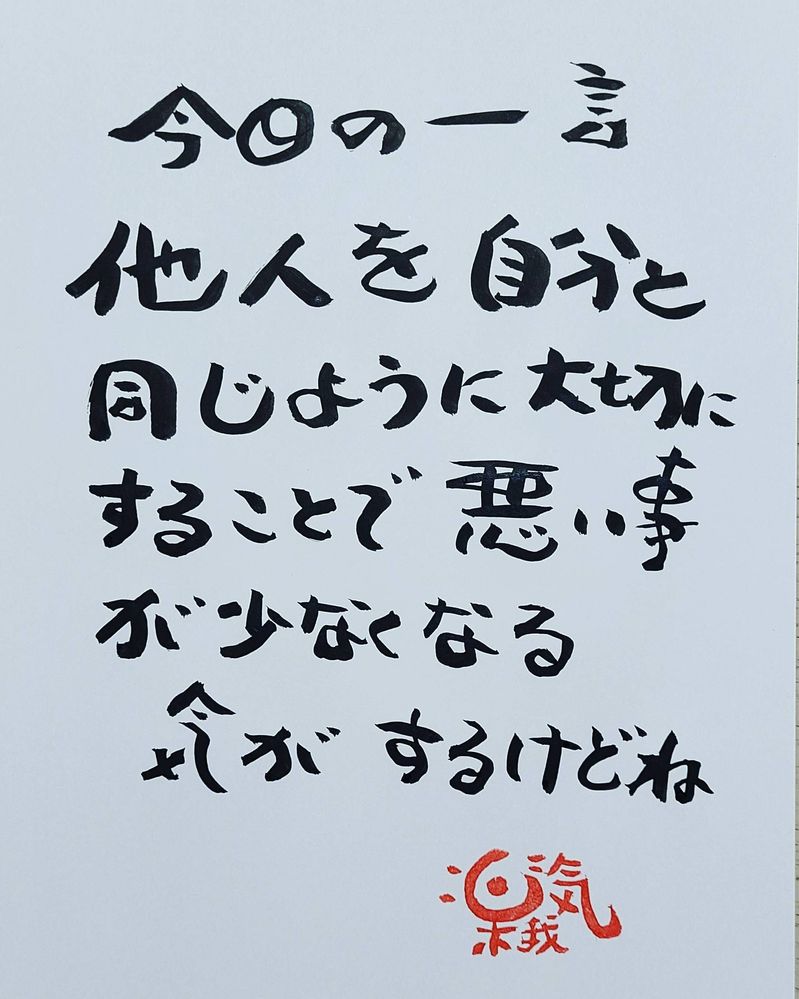 今日の一言
他人を自分と
同じように大切に
することで悪い事
が少なくなる
気がするけどね